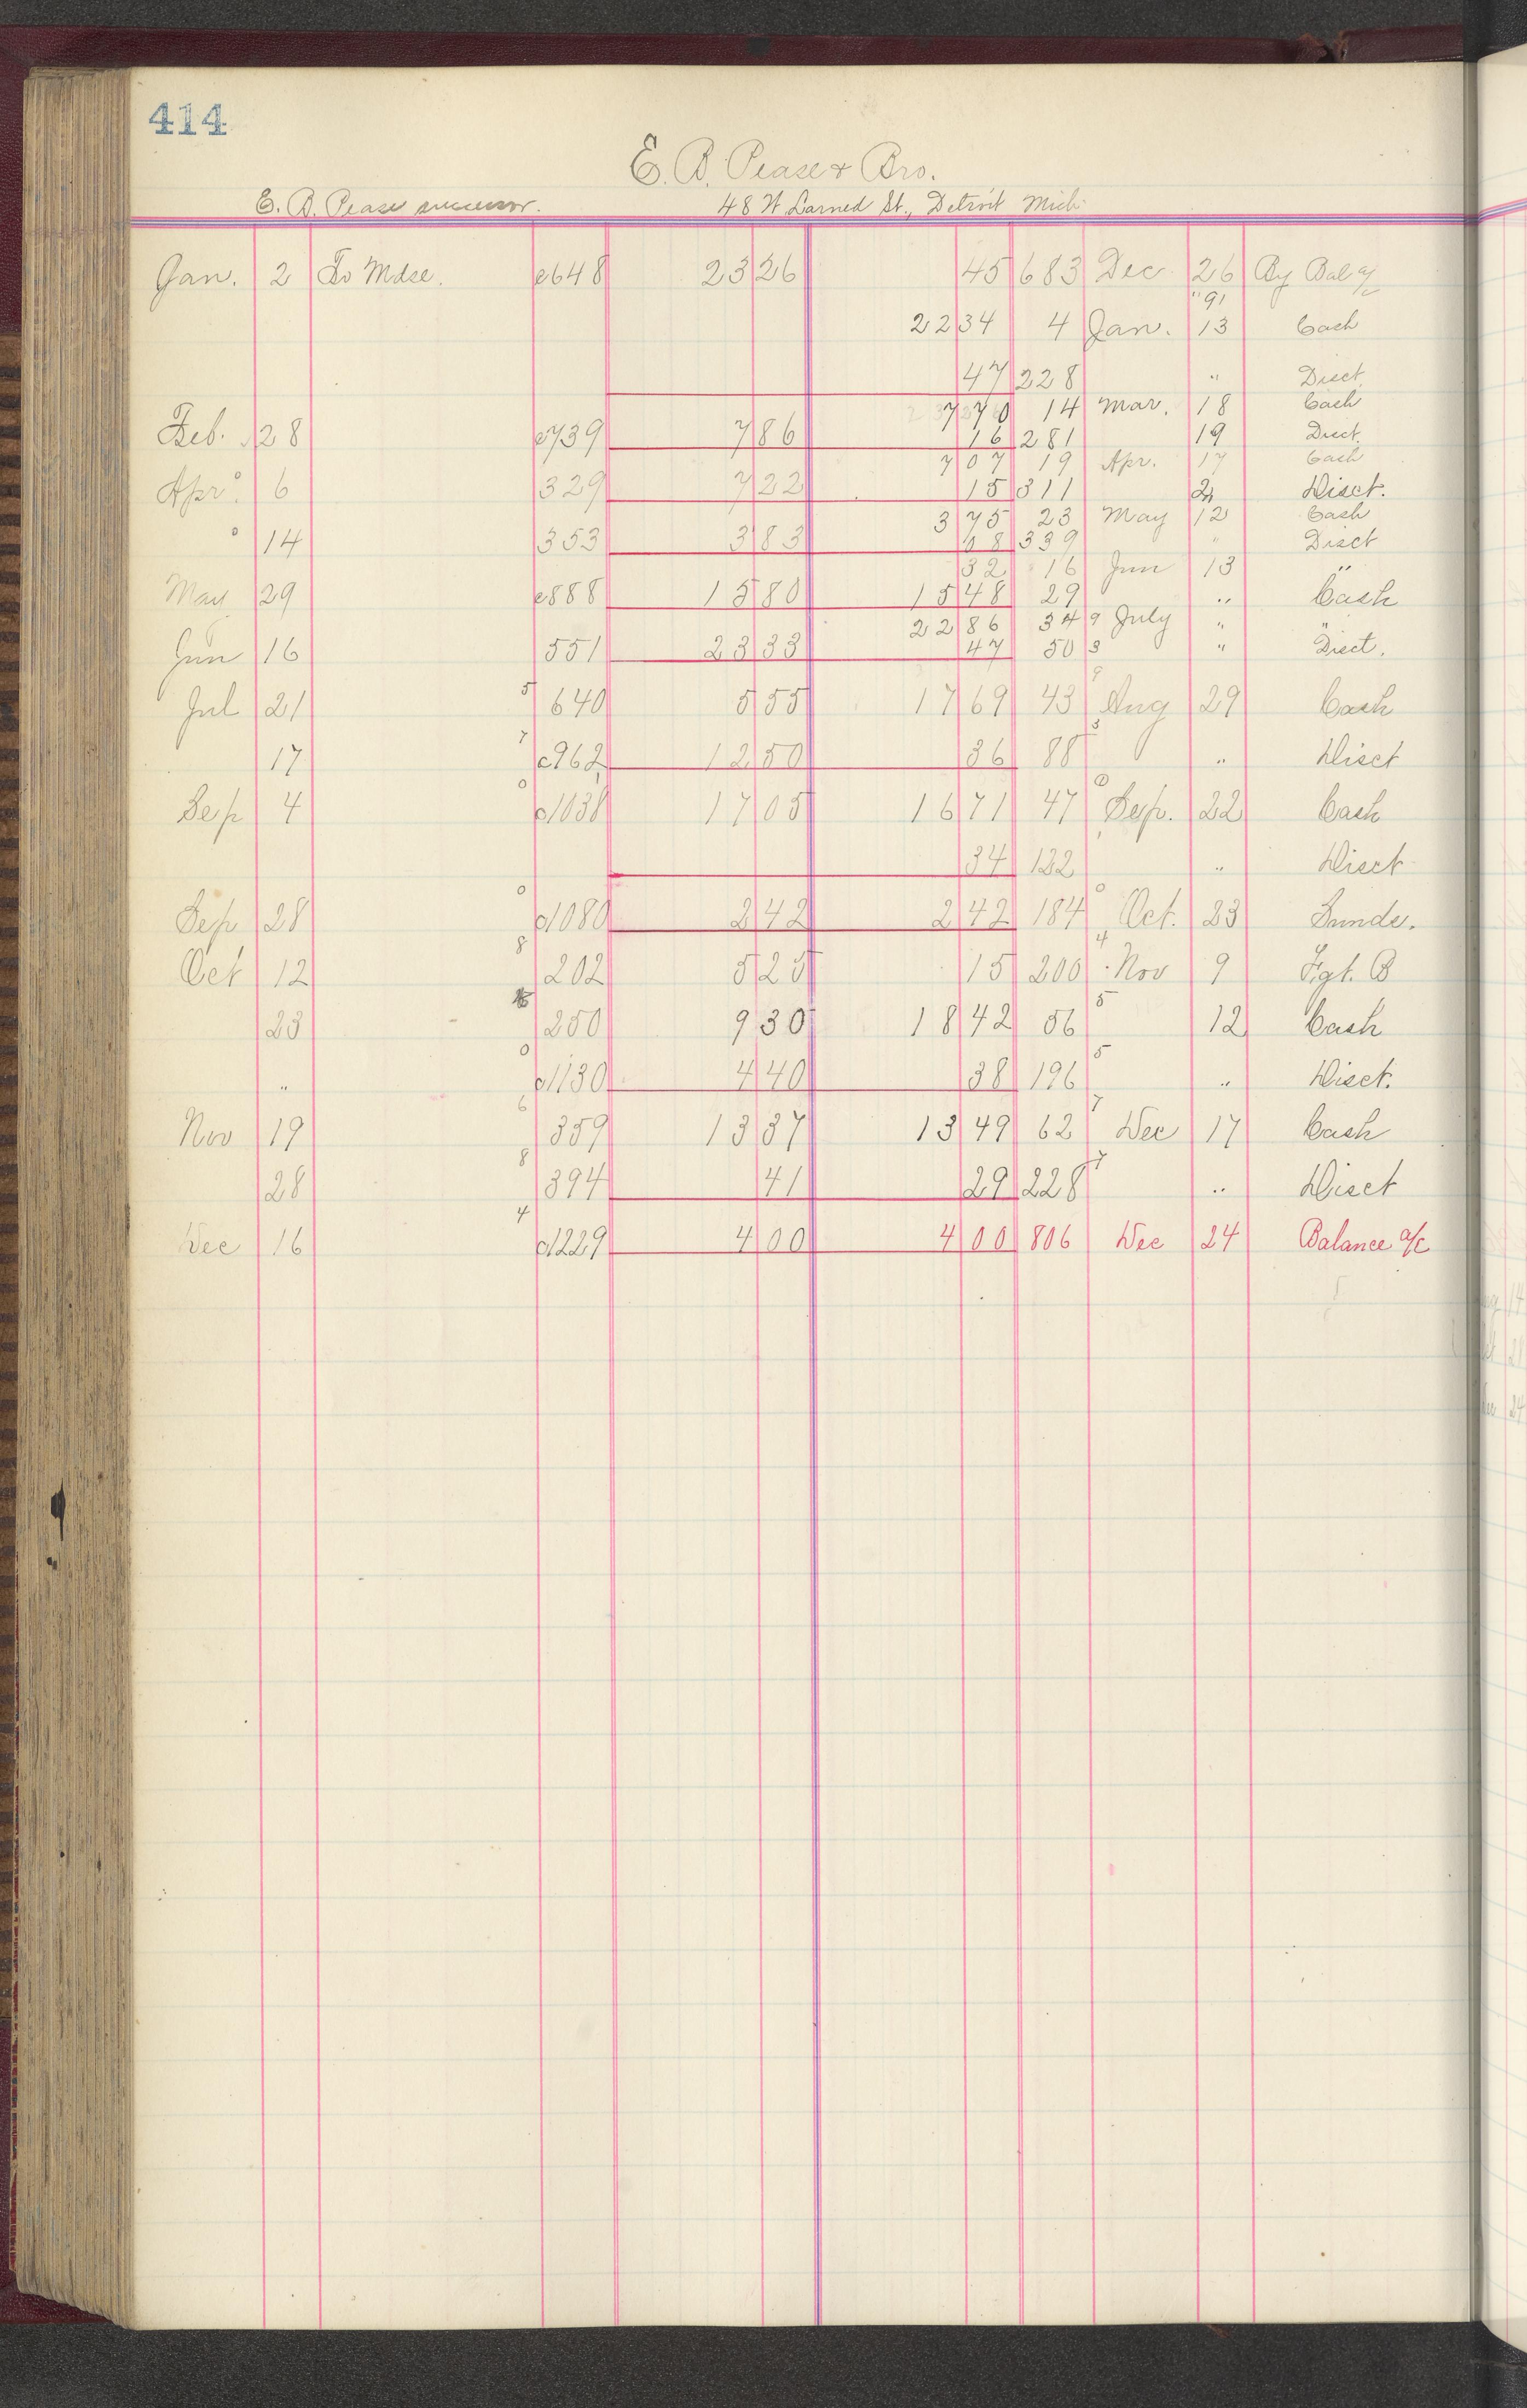 414
E. B. Pease & Bro.
E. B. Pease successor. 48 W Larned St., Detroit Mich
Jan. 2 To Mdse. c648 23 26 45 683 Dec 26 By Bal a/c
"91
22 34 4 Jan. 13 Cash
47 228 " Disct.
7 70 14 Mar. 18 Cash
Feb. 28 c739 7 86 16 281 19 Disct.
7 07 19 Apr. 17 Cash
Apr. 6 329 7 22 15 311 21 Disct.
3 75 23 May 12 Cash
" 14 353 3 83 08 339 " Disct
32 16 Jun 13 "
May 29 c888 15 80 15 48 29 " Cash
22 86 34 9 July " "
Jun 16 551 23 33 47 50 3 " Disct.
Jul 21 5 640 5 55 17 69 43 9 Aug 29 Cash
17 7 c962 12 50 36 88 3 " Disct
Sep 4 0 c1038 17 05 16 71 47 0 Sep. 22 Cash
34 132 " Disct
Sep 28 0 c1080 2 42 2 42 184 0 Oct. 23 Sunds.
Oct 12 8 202 5 25 15 200 4 Nov 9 Fgt. B
23 250 9 30 18 42 56 5 12 Cash
" 0 c1130 4 40 38 196 5 " Disct.
Nov 19 6 359 13 37 13 49 62 7 Dec 17 Cash
28 8 394 41 29 228 7 " Disct
Dec 16 4 c1229 4 00 4 00 806 Dec 24 Balance a/c